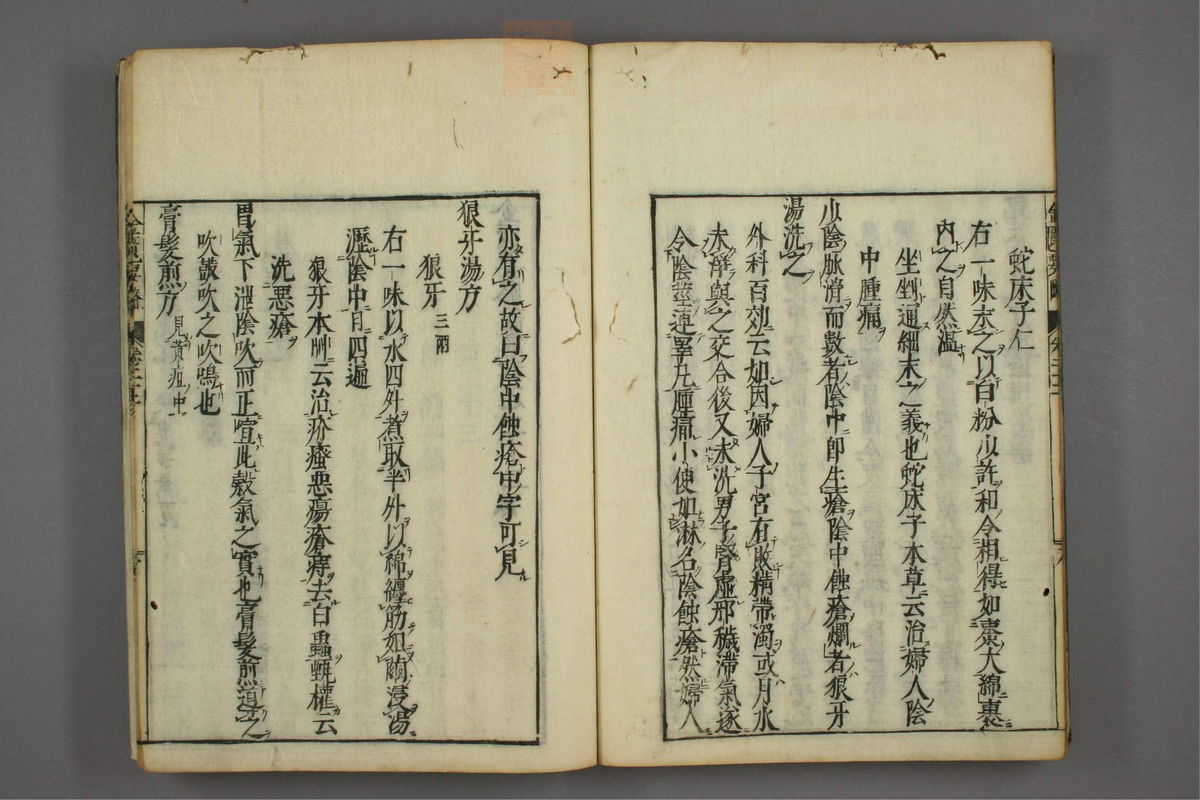 蛇床子仁
右一味末之以白粉少許和令相得如棗大綿裹
內之自然溫
坐剉通細末之義也蛇床子本草云治婦人陰
中腫痛
少陰脈滑而數者陰中即生瘡陰中蝕瘡爛者狼牙
湯洗之
外科百効云如因婦人子宮有敗精帶濁或月水
未淨與之交合後又未洗男子腎虛邪穢滯氣遂
令陰莖連睪丸腫痛小便如淋名陰蝕瘡然婦人
亦有之故曰陰中蝕瘡中字可見
狼牙湯方
狼牙三兩
右一味以水四升煮取半升以綿纏筯如繭浸湯
瀝陰中日四遍
狼牙本艸云治疥瘙惡瘍瘡痔去白蟲甄權云
洗惡瘡
胃氣下泄陰吹而正喧此穀氣之實也膏髮煎導之
吹謂吹之吹鳴也
膏髮煎方見黃疸中